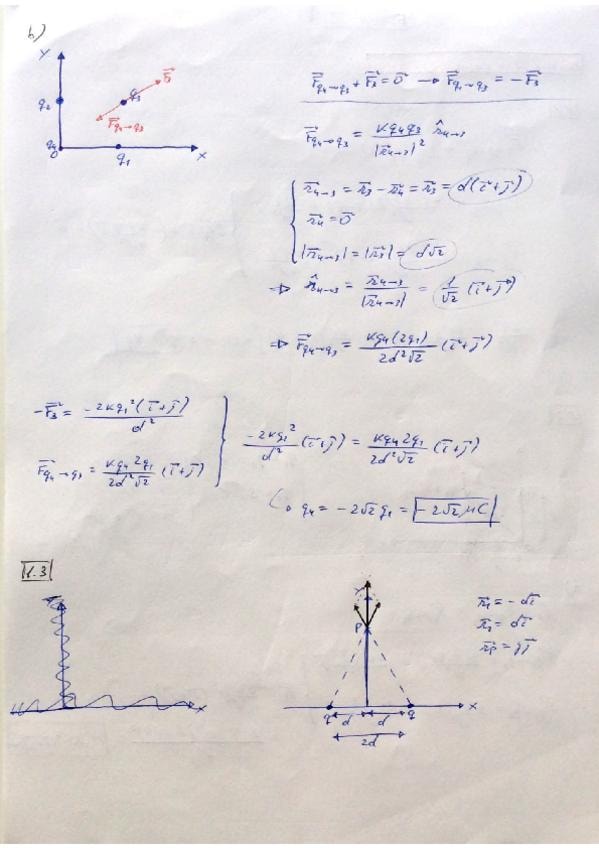 b)
Y
q₂
q₃
F⃗₃
F⃗q₄→q₃
q₄
0
q₁
X
F⃗q₄→q₃ + F⃗₃ = 0⃗ → F⃗q₄→q₃ = −F⃗₃
F⃗q₄→q₃ = Kq₄q₃ / |r⃗₄→₃|² r̂₄→₃
r⃗₄→₃ = r⃗₃ − r⃗₄ = r⃗₃ = d(i⃗+j⃗)
r⃗₄ = 0⃗
|r⃗₄→₃| = |r⃗₃| = d√2
⇒ r̂₄→₃ = r⃗₄→₃ / |r⃗₄→₃| = 1/√2 (i⃗+j⃗)
⇒ F⃗q₄→q₃ = Kq₄(2q₁) / 2d²√2 (i⃗+j⃗)
−F⃗₃ = −2Kq₁²(i⃗+j⃗) / d²
F⃗q₄→q₃ = Kq₄2q₁ / 2d²√2 (i⃗+j⃗)
−2Kq₁² / d² (i⃗+j⃗) = Kq₄2q₁ / 2d²√2 (i⃗+j⃗)
q₄ = −2√2q₁ = −2√2 μC
1.3
X
Y
P
q
d
d
q
X
2d
r⃗₁ = −di⃗
r⃗₂ = di⃗
r⃗P = yj⃗